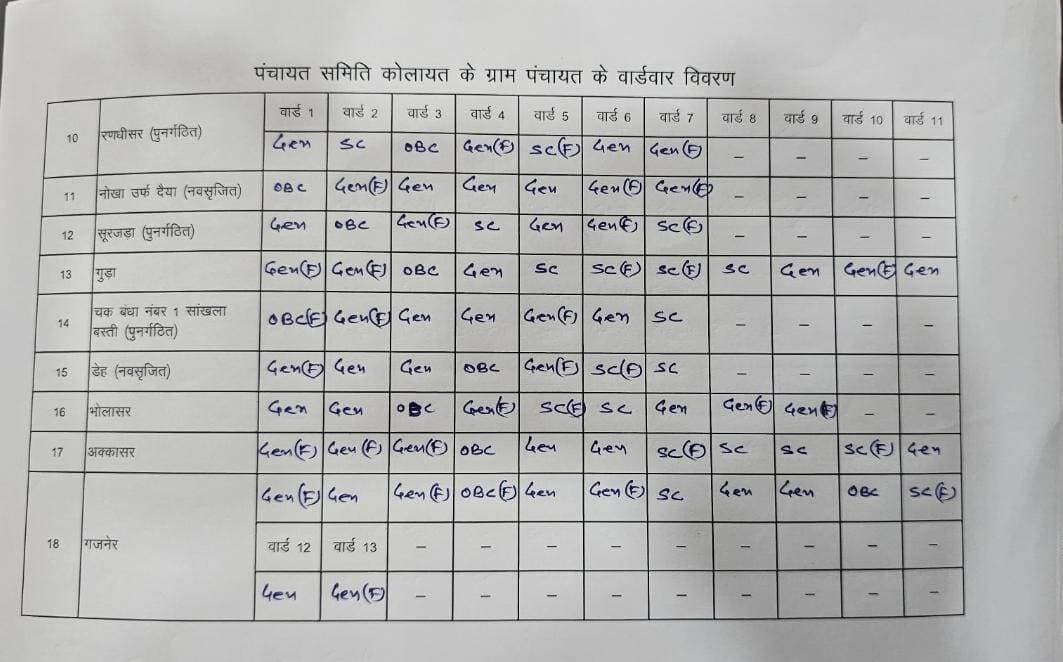 पंचायत समिति कोलायत के ग्राम पंचायत के वार्डवार विवरण
वार्ड 1 वार्ड 2 वार्ड 3 वार्ड 4 वार्ड 5 वार्ड 6 वार्ड 7 वार्ड 8 वार्ड 9 वार्ड 10 वार्ड 11
10 रणधीसर (पुनर्गठित) Gen SC OBC Gen(F) SC(F) Gen Gen(F) – – – –
11 नोखा उर्फ दैया (नवसृजित) OBC Gen(F) Gen Gen Gen Gen(F) Gen(F) – – – –
12 सूरजड़ा (पुनर्गठित) Gen OBC Gen(F) SC Gen Gen(F) SC(F) – – – –
13 गुड़ा Gen(F) Gen(F) OBC Gen SC SC(F) SC(F) SC Gen Gen(F) Gen
14 चक बंधा नंबर 1 सांखला
बस्ती (पुनर्गठित) OBC(F) Gen(F) Gen Gen Gen(F) Gen SC – – – –
15 डेह (नवसृजित) Gen(F) Gen Gen OBC Gen(F) SC(F) SC – – – –
16 भोलासर Gen Gen OBC Gen(F) SC(F) SC Gen Gen(F) Gen(F) – –
17 अक्कासर Gen(F) Gen(F) Gen(F) OBC Gen Gen SC(F) SC SC SC(F) Gen
Gen(F) Gen Gen(F) OBC(F) Gen Gen(F) SC Gen Gen OBC SC(F)
18 गजनेर वार्ड 12 वार्ड 13 – – – – – – – – –
Gen Gen(F) – – – – – – – – –